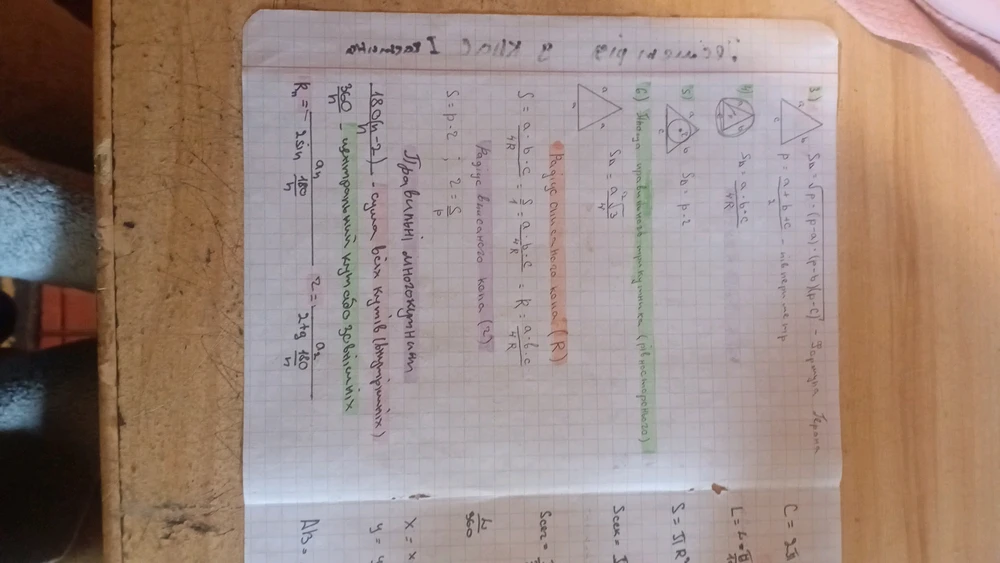 3) S△ = √p·(p-a)·(p-b)(p-c) - Формула Герона
p = a+b+c/2 - півпериметр
4) S△ = a·b·c/4R
5) S△ = p·r
6) Площа правильного трикутника (рівностороннього)
S△ = a²√3/4
Радіус описаного кола (R)
S = a·b·c/4R = S/1 = a·b·c/4R = R = a·b·c/4R
Радіус вписаного кола (r)
S = p·r ; r = S/p
Правильні многокутники
180(n-2)/n - сума всіх кутів (внутрішніх)
360/n - центральний кут або зовнішніх
Rn = an/2sin 180/n
r = a2/2tg 180/n
C = 2π
S = πR²
Sсек =
Sсег =
x = x
y = y
AB =